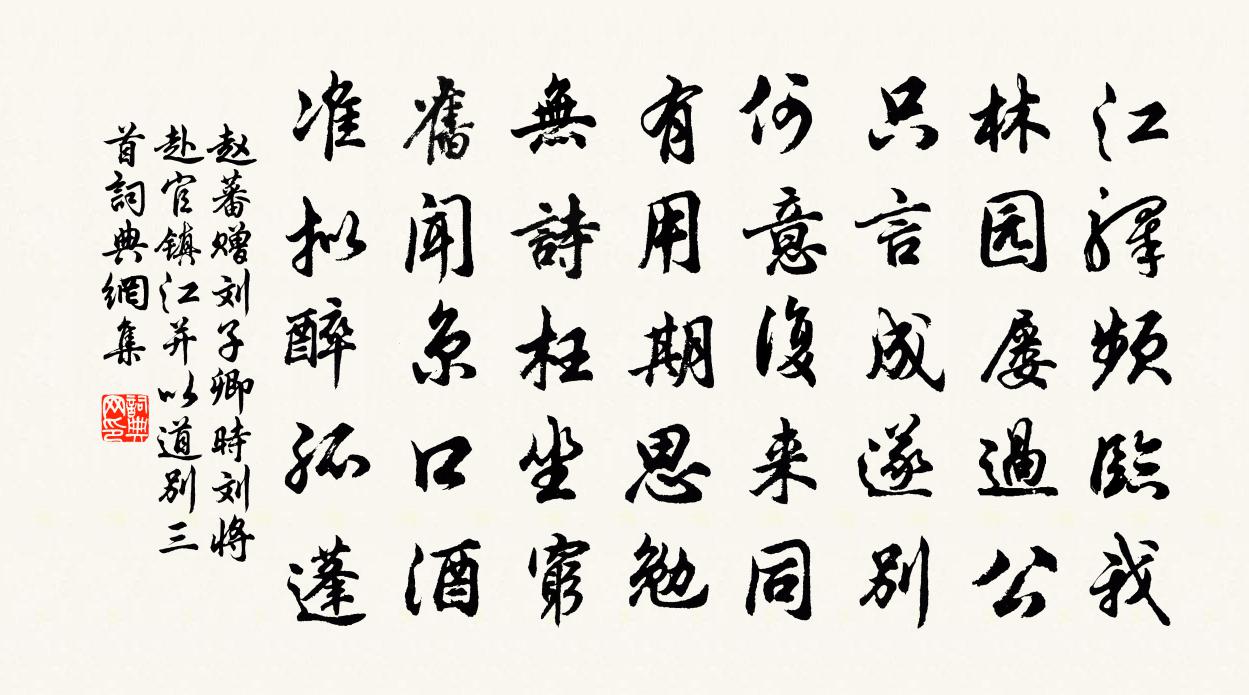 江驛頻臨我
林园屡過公
只言成遂别
何意復来同
有用期思勉
無詩枉坐窮
舊闻京口酒
准拟醉孤蓬
赵蕃赠刘子卿時刘将
赴官镇江并以道别三
首詞典網集
詞典网印